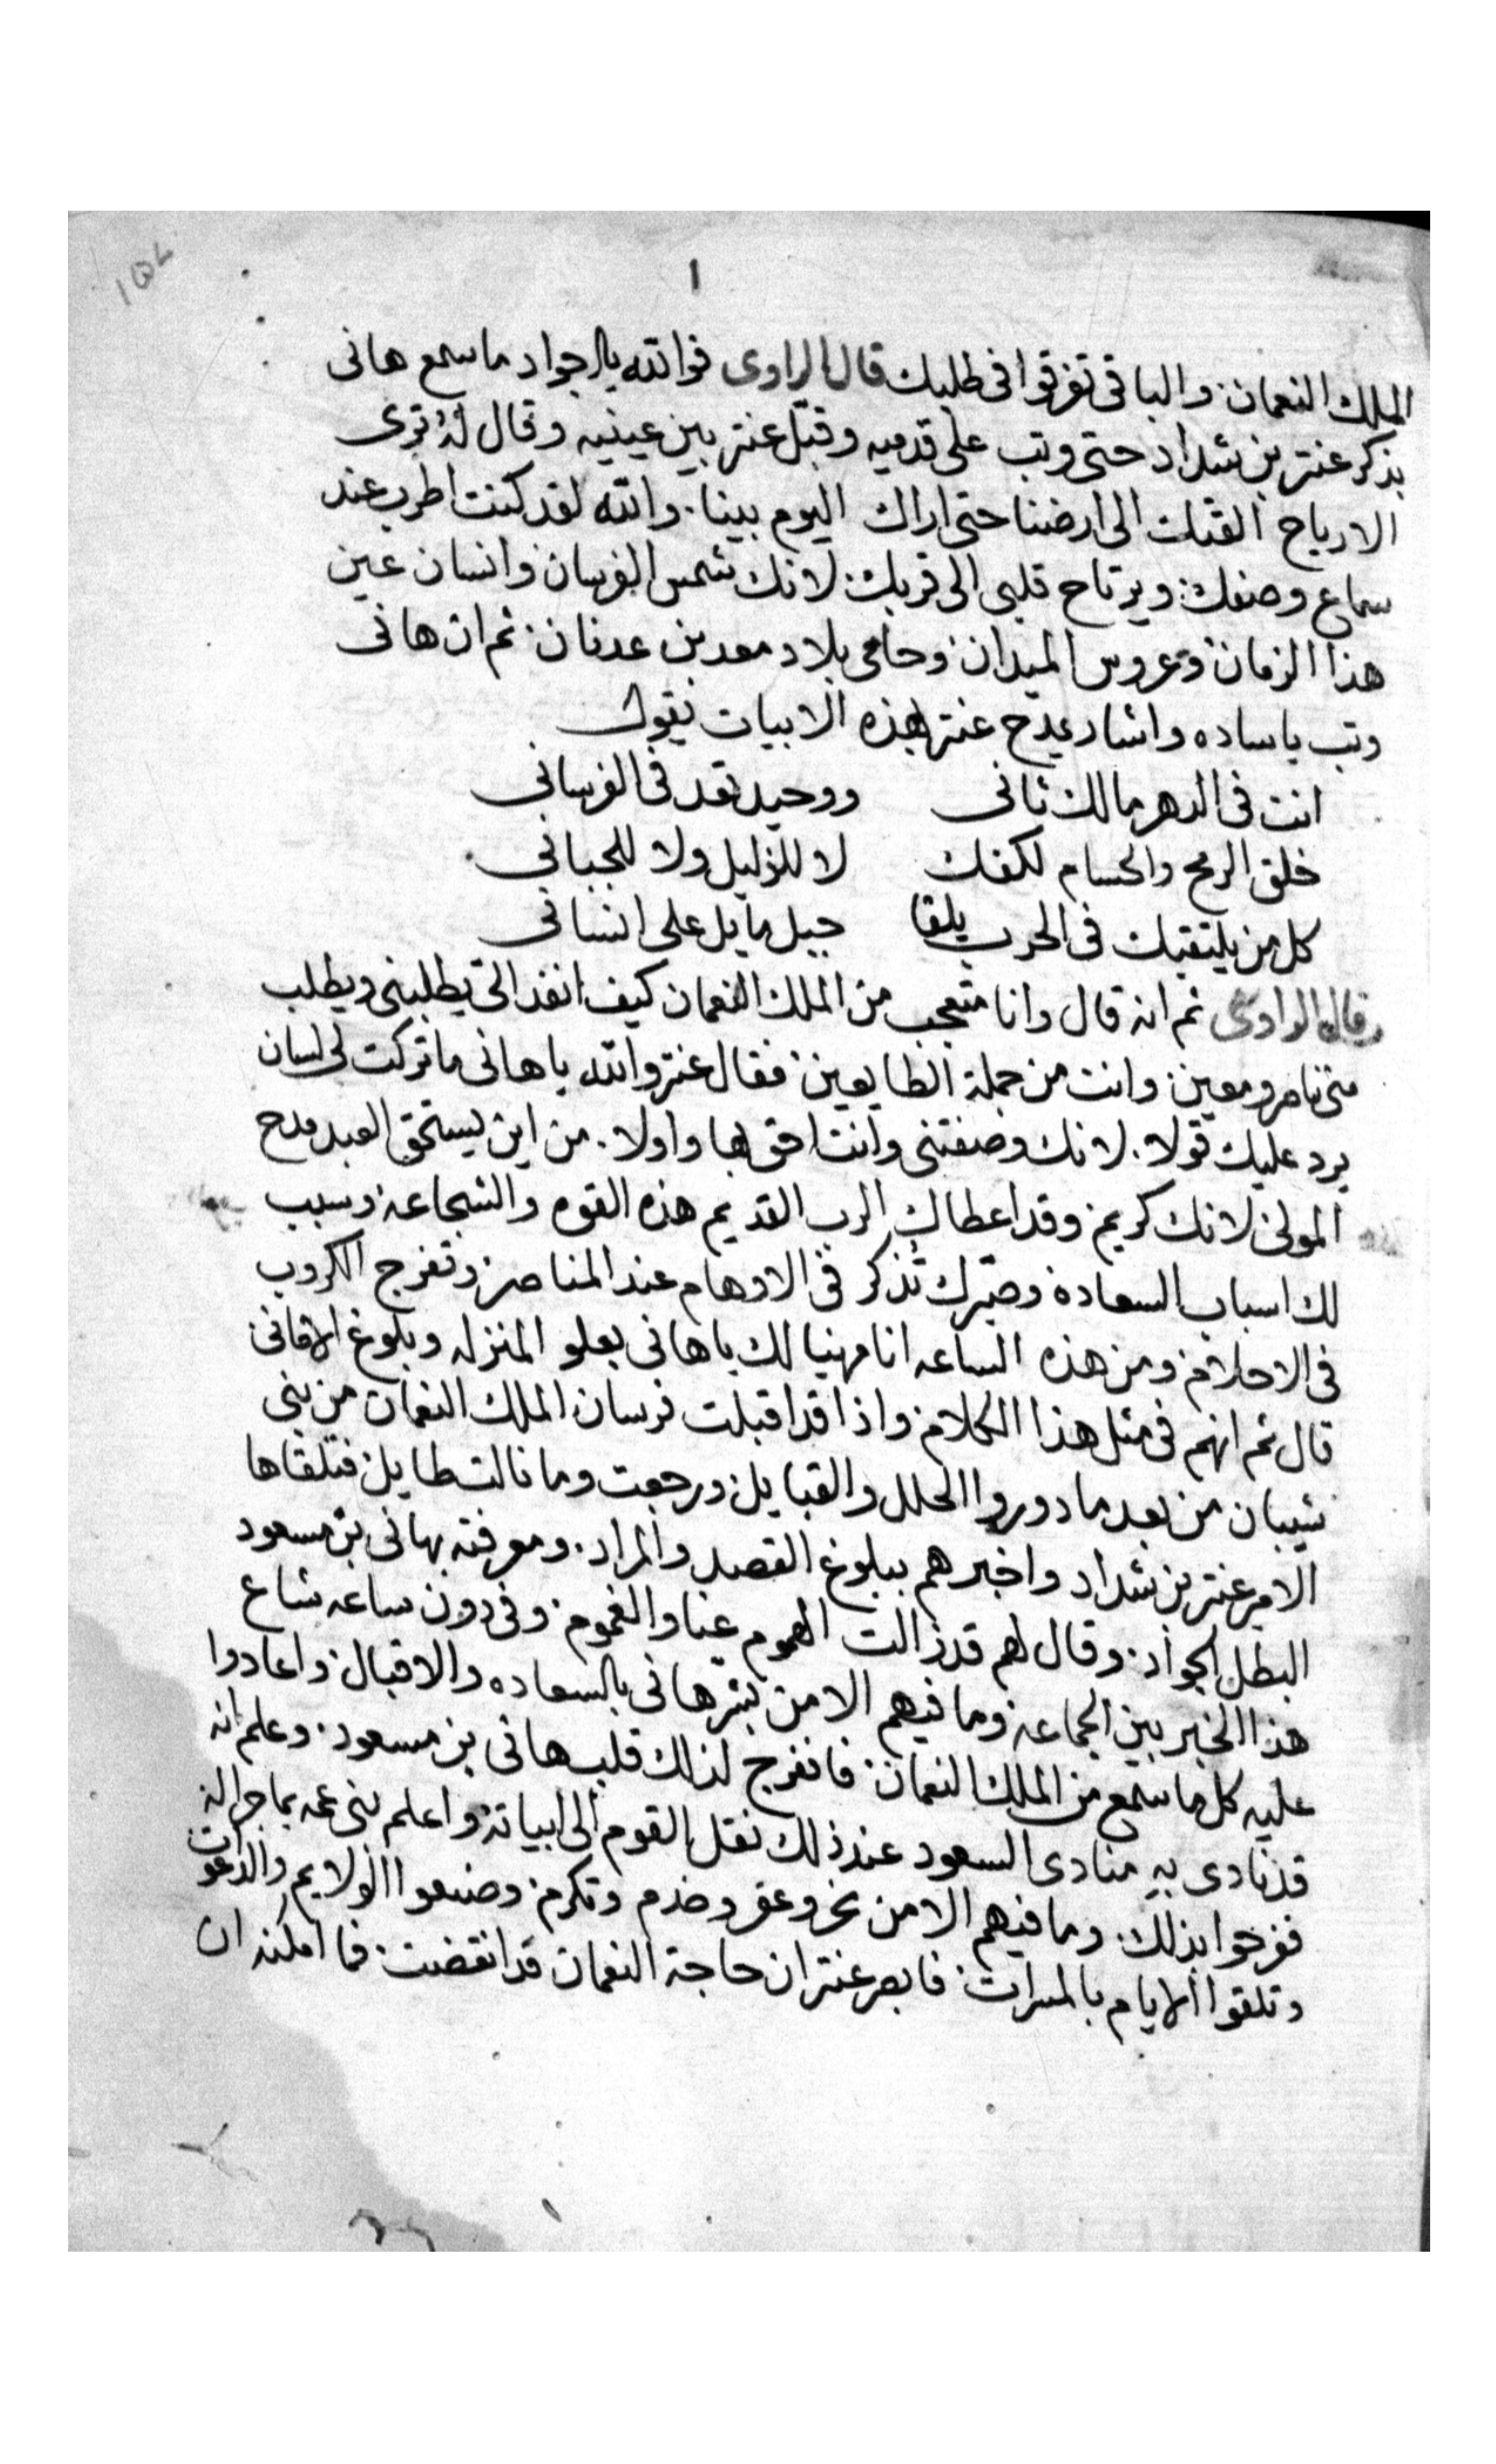 ١٥٧
١
الملك النعمان. والباقي تفرقوا في طلبك قال الراوى فوالله يا جواد ما سمع هانى
بذكر عنتر بن شداد حتى وتب على قدميه وقبل عنتر بين عينيه وقال له ترى
الارياح القتك الى ارضنا حتى اراك اليوم بينا. والله لقد كنت اطرب عند
سماع وصفك. ويرتاح قلبى الى قربك. لانك شمس الفرسان وانسان عين
هذا الزمان وعروس الميدان وحامى بلاد معد بن عدنان. ثم ان هانى
وتب يا ساده واشار يمدح عنتر بهذه الابيات يقول
انت فى الدهر مالك ثانى ووحيد تعد فى الفرسانى
خلق الرمح والحسام لكفك لا للذليل ولا للجبانى
كل من يلتقيك فى الحرب يلقا جبل مايل على انسانى
قال الراوى ثم انه قال وانا متعجب من الملك النعمان كيف انفذ الى يطلبنى ويطلب
منى ناصر ومعين. وانت من جملة الطايعين. فقال عنتر والله يا هانى ما تركت لى لسان
يرد عليك قولا. لانك وصفتنى وانت احق بها واولا. من اين يستحق العبد مدح
المولى لانك كريم. وقد اعطاك الرب القديم هذه القوه والشجاعه وسبب
لك اسباب السعاده وصيرك تذكر فى الاوهام عند المناصر وتفرج الكروب
فى الاحلام ومن هذه الساعه انا مهنيا لك يا هانى بعلو المنزله وبلوغ الامانى
قال ثم انهم فى مثل هذا الكلام واذا قد اقبلت فرسان الملك النعمان من بنى
شيبان من بعد ما دوروا الحلل والقبايل ورجعت وما نالت طايل فتلقاها
الامير عنتر بن شداد واخبرهم ببلوغ القصد والمراد. ومعرفته بهانى بن مسعود
البطل الجواد. وقال لهم قد زالت الهموم عنا والغموم. وفى دون ساعه شاع
هذا الخبر بين الجماعه وما فيهم الا من بشر هانى بالسعاده والاقبال واعادوا
عليه كل ما سمع من الملك النعمان. فانفرج لذلك قلب هانى بن مسعود. وعلم انه
قد نادى به منادى السعود عند ذلك نقل القوم الى ابياته واعلم بنى عمه بما جرا له
ففرحوا بذلك. وما فيهم الا من نحر وعقر وخدم وتكرم. وصنعوا الولايم والدعوات
وتلقوا الايام بالمسرات. فابصر عنتر ان حاجة النعمان قد انقضت. فما امكنه ان